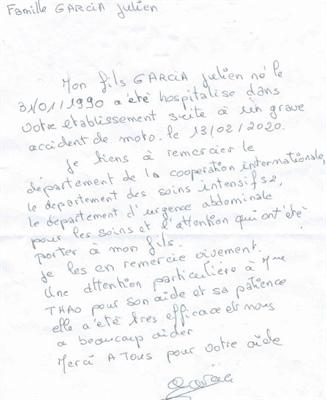 Famille GARCIA Julien
Mon fils GARCIA Julien né le
31/01/1990 a été hospitalise dans
votre etablissement suite à un grave
accident de moto. le 13/02/2020.
Je tiens à remercier le
département de la cooperation internationale,
le departement des soins intensifs 2,
le département d'urgence abdominale
pour les soins et l'attention qui ont été
porter à mon fils.
Je les en remercie vivement.
Une attention particulière à Mme
THAO pour son aide et sa patience
elle a été très efficace et nous
a beaucoup aider
Merci A TOUS pour votre aide